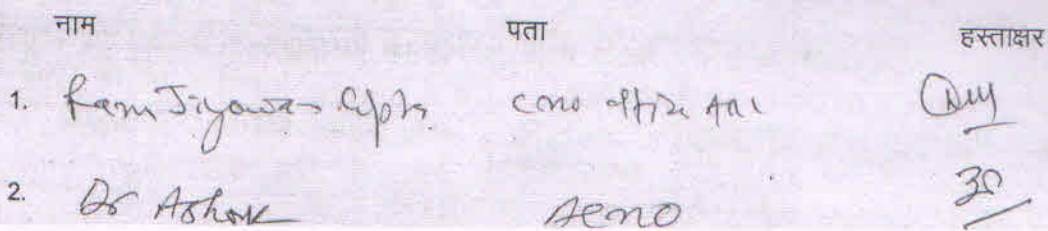 नाम पता हस्ताक्षर
1. Ram Jiyawan Gupta CMO office
2. Dr Ashok ACMO